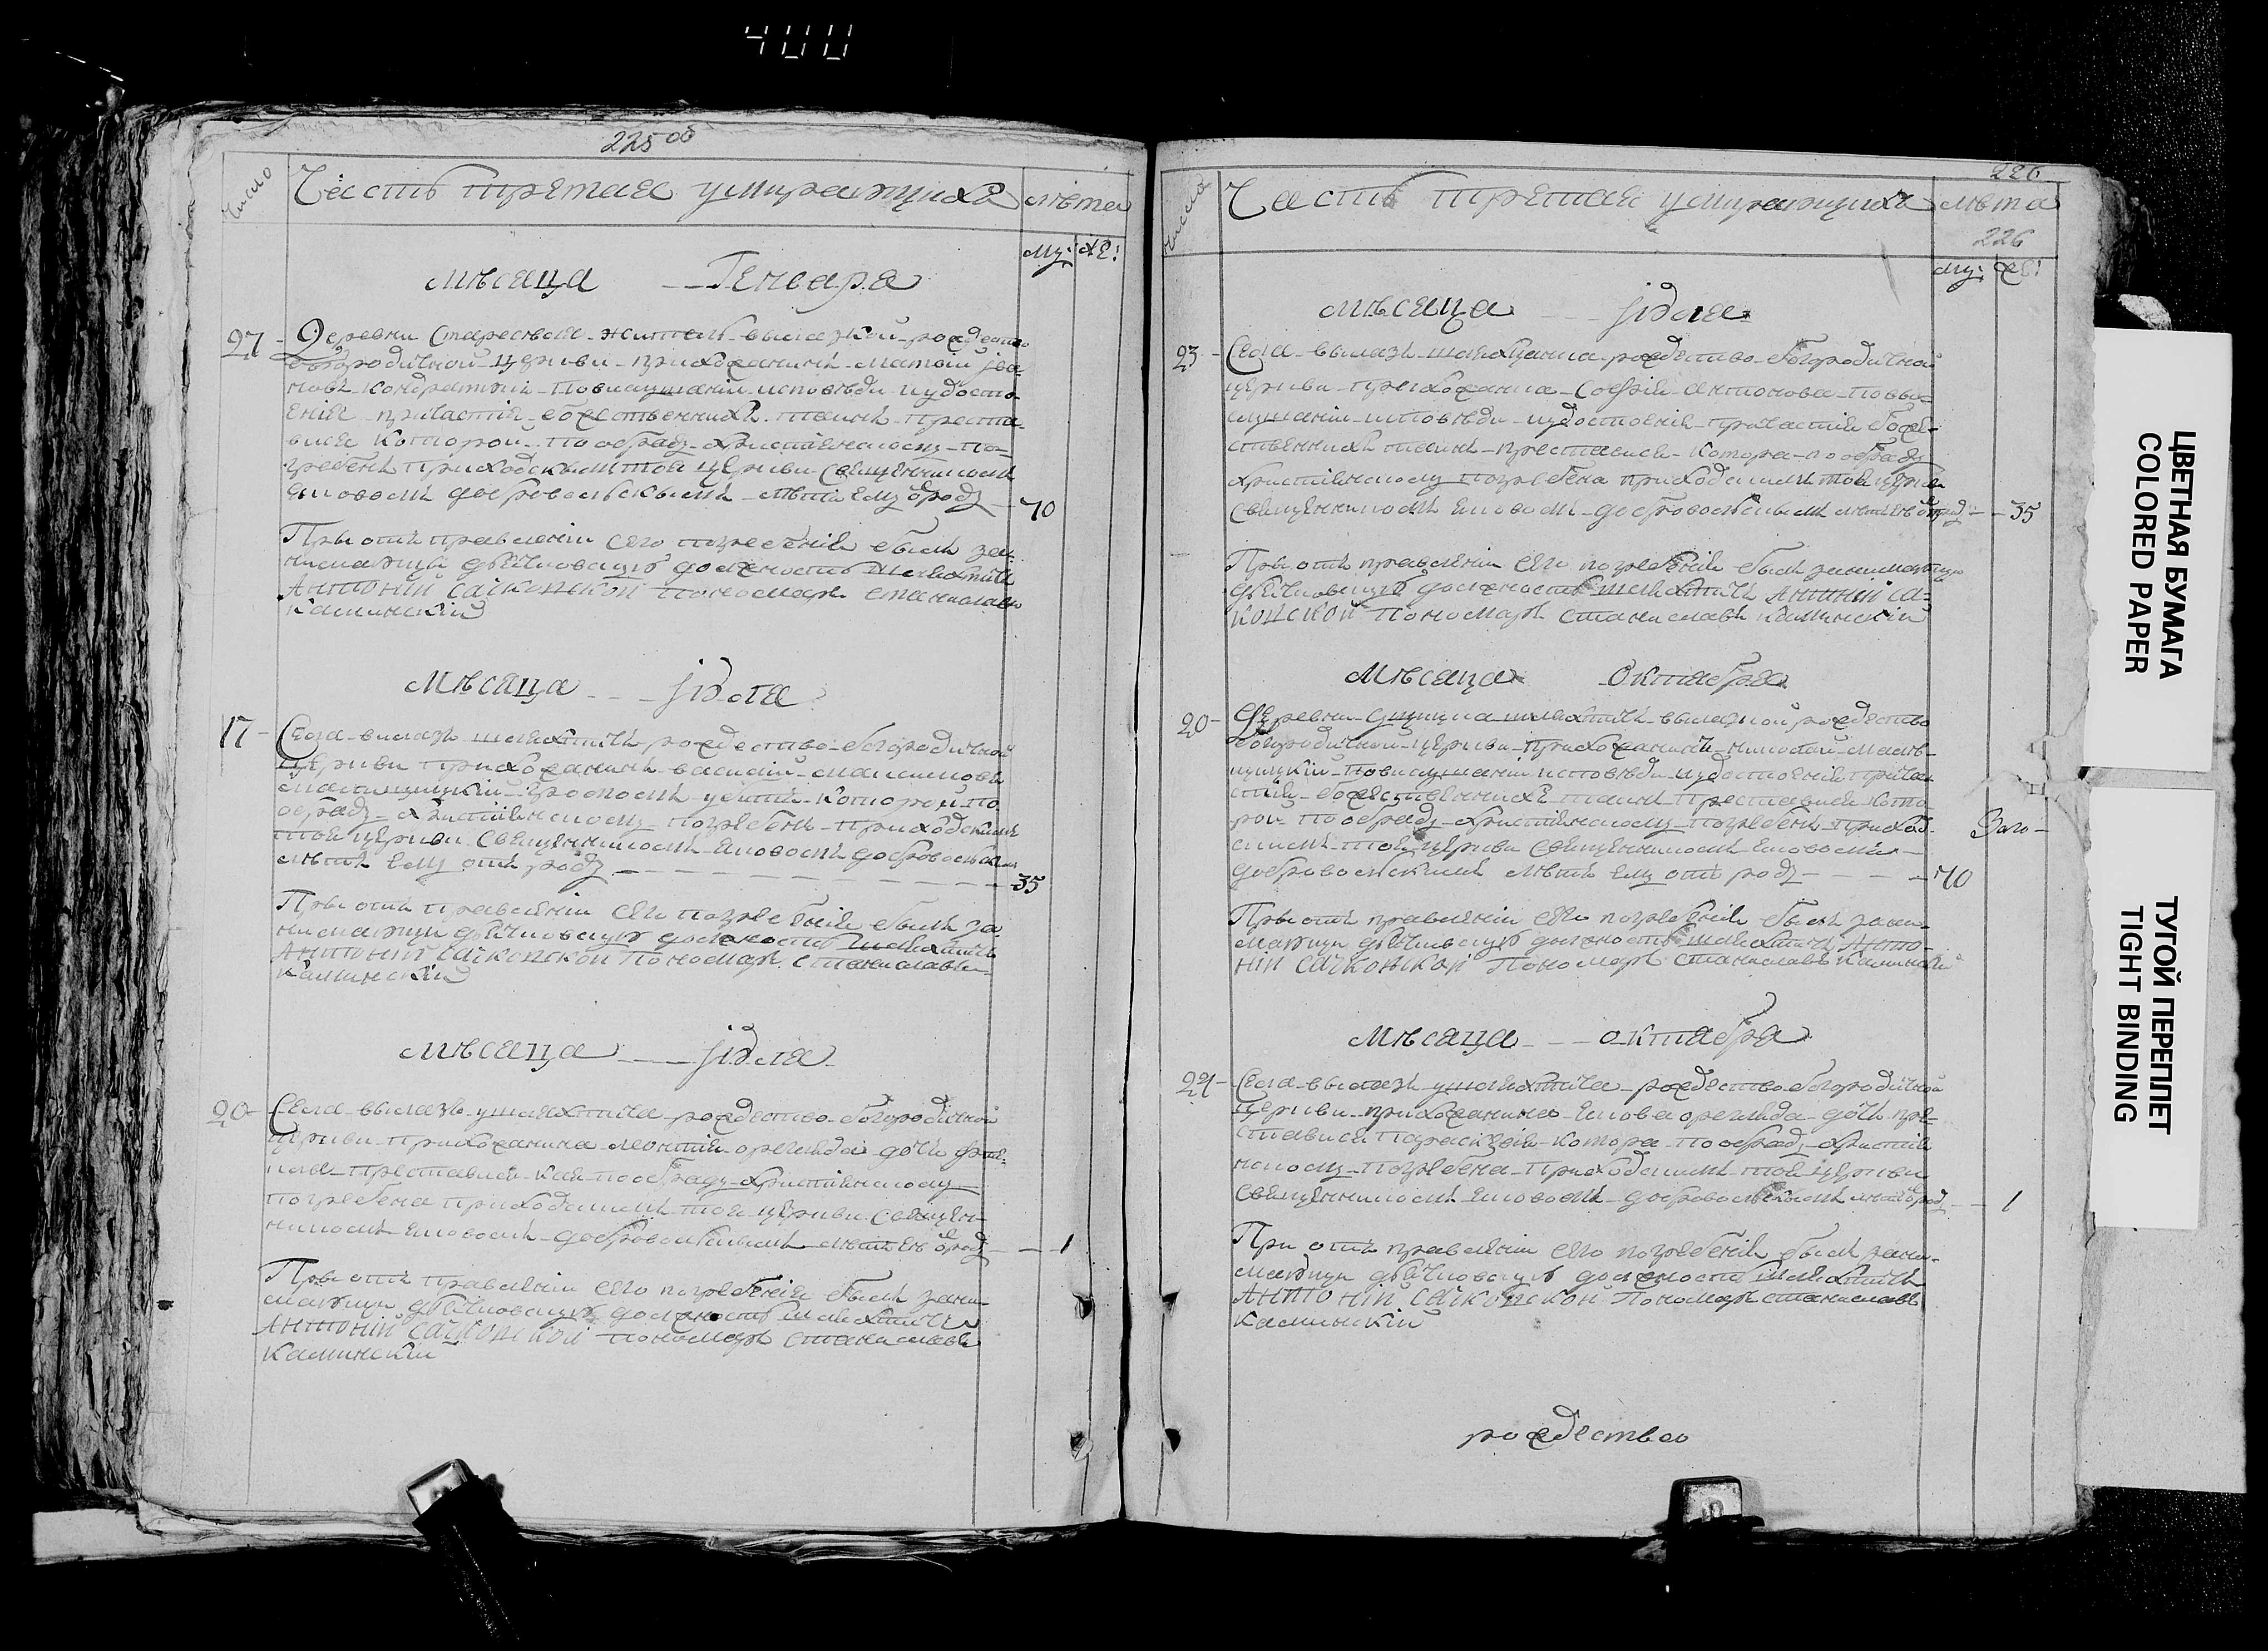 400
225 об
Число
Часть третая умирающихъ
лѣта
му: же:
Мѣсяца Генваря
27 Деревни Старосѣля житель вылазкой рождество
богородичной церкви прихожанинъ матвій іва-
новъ кондратюк повислушаніи исповѣди иудосто-
енія причастія божественнихъ таинъ преста-
вися которои пообраду христіянскому по-
гребенъ приходскымъ тоя церкви Священникомъ
яковомъ добровольскымъ лѣтъ ему отроду 70
При отъ правленіи сего погребенія былъ зан-
нимающи дьячковскую должность шляхтичъ
Антоній Сачковской Пономарь Станиславъ
Калинскій
Мѣсяца Іюля
17 Села вилазъ шляхтичъ рождество богородичной
церкви прихожанинъ василій максимовъ
громомъ убитъ которои по
обраду христіянскому погребенъ приходскимъ
тоя церкви Священникомъ яковомъ добровольскимъ
лѣтъ ему отъ роду 35
При отъ правленіи сего погребенія былъ за-
нимающи дьячковскую должность шляхтичъ
Антоній Сачковской Пономарь Станиславъ
Калинскій
Мѣсяца Іюля
20 Села вылазъ ушляхтича рождество богородичной
церкви прихожанина леонтія дочь
преставися коя пообраду христіянскому
погребена приходскимъ тоя церкви Священ-
никомъ яковомъ добровольскымъ лѣтъ ей отроду 1
При отъ правленіи сего погребенія былъ зани-
мающи дьячковскую должность шляхтичъ
Антоній Сачковской пономарь Станиславъ
Калинскій
226
Число
Часть третая умирающихъ
лѣта
226
му: же:
Мѣсяца Іюля
23 Села вылазъ шляхцянка рождество богородичной
церкви прихожанка Софія антонова повы-
слушаніи исповѣди иудостоенія причастія боже-
ственнихъ таинъ преставися котора пообраду
христіянскому погребена приходскимъ тоя церкви
Священникомъ яковомъ добровольскымъ лѣтъ ей отроду 35
При отъ правленіи сего погребенія былъ занимающи
дьячковскую должность шляхтичъ Антоній Са-
ковской Пономарь Станиславъ Калинскій
Мѣсяца Октября
20 Деревни шляхтичъ вылазкой рождество
богородичной церкви прихожанинъ николай
повислушаніи исповѣди иудостоенія прича-
стія божественнихъ таинъ преставися кото-
рои пообраду христіянскому погребенъ приход-
скимъ тоя церкви Священникомъ яковомъ
добровольскимъ лѣтъ ему отъ роду 70
При отъ правленіи сего погребенія былъ зани-
мающи дьячковскую должность шляхтичъ Анто-
ній Сачковской Пономарь Станиславъ Калинскій
Мѣсяца октября
Села вылазъ ушляхтича рождество богородичной
церкви прихожанина якова дочь пре-
ставися параскевія котора пообраду христія-
нскому погребена приходскимъ тоя церкви
Священникомъ яковомъ добровольскымъ лѣтъ отроду 1
При отъ правленіи сего погребенія былъ зани-
мающи дьячковскую должность шляхтичъ
Антоній Сачковской Пономарь Станиславъ
Калинскій
рождество
ЦВЕТНАЯ БУМАГА
COLORED PAPER
ТУГОЙ ПЕРЕПЛЕТ
TIGHT BINDING